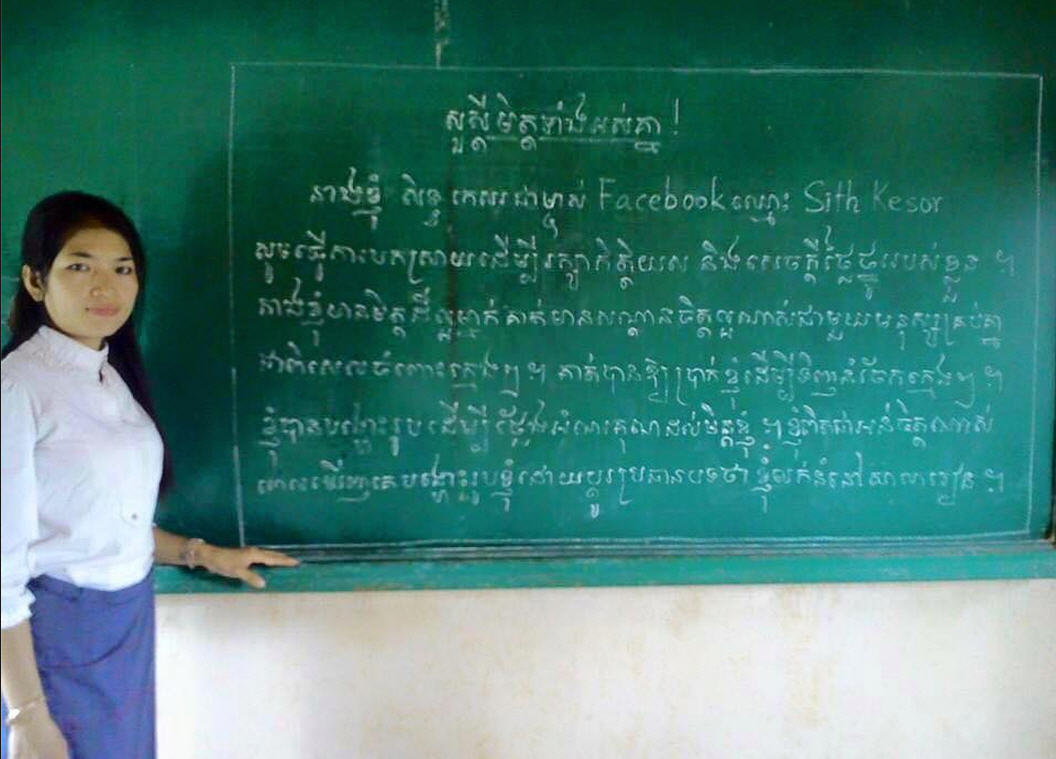 សួស្ដីមិត្តទាំងអស់គ្នា!
នាងខ្ញុំ សិទ្ធ កេសរ ជាម្ចាស់ Facebook ឈ្មោះ Sith Kesor
សូមធ្វើការបកស្រាយដើម្បីរក្សាកិត្តិយស និងសេចក្ដីថ្លៃថ្នូររបស់ខ្លួន ។
នាងខ្ញុំមានមិត្តដ៏ល្អម្នាក់គាត់មានសណ្ដានចិត្តល្អណាស់ជាមួយមនុស្សគ្រប់គ្នា
ជាពិសេសចំពោះក្មេងៗ ។ គាត់បានឱ្យប្រាក់ខ្ញុំដើម្បីទិញនំចែកក្មេងៗ ។
ខ្ញុំបានបង្ហោះរូបដើម្បីថ្លែងអំណរគុណដល់មិត្តខ្ញុំ ។ ខ្ញុំពិតជាអន់ចិត្តណាស់
ពេលឃើញគេបង្ហោះរូបខ្ញុំដោយប្ដូរប្រធានបទថា ខ្ញុំលក់នំនៅសាលារៀន ។